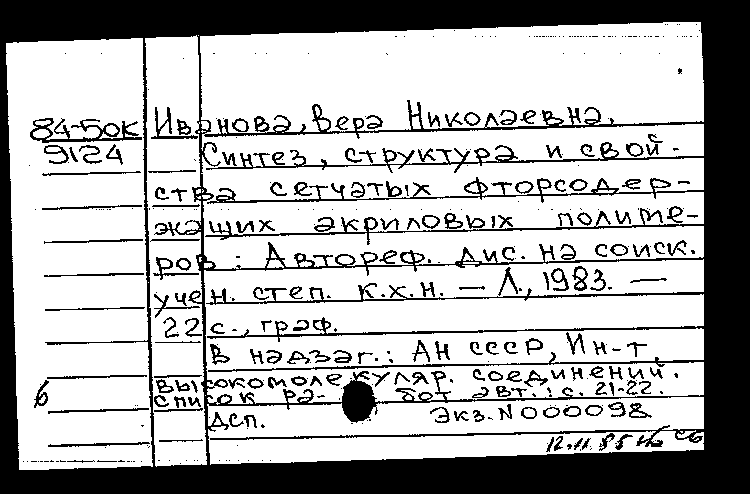 84-5ок Иванова, Вера Николаевна.
9124 Синтез, структура и свой-
ства сетчатых фторсодер-
жащих акриловых полиме-
ров : Автореф. дис. на соиск.
учен. степ. к.х.н. — Л., 1983. —
22 с., граф.
В надзаг.: АН СССР, Ин-т
высокомолекуляр. соединений.
б Список ра- бот авт.: с. 21-22.
ДСП. Экз. N 000098
12.11.85